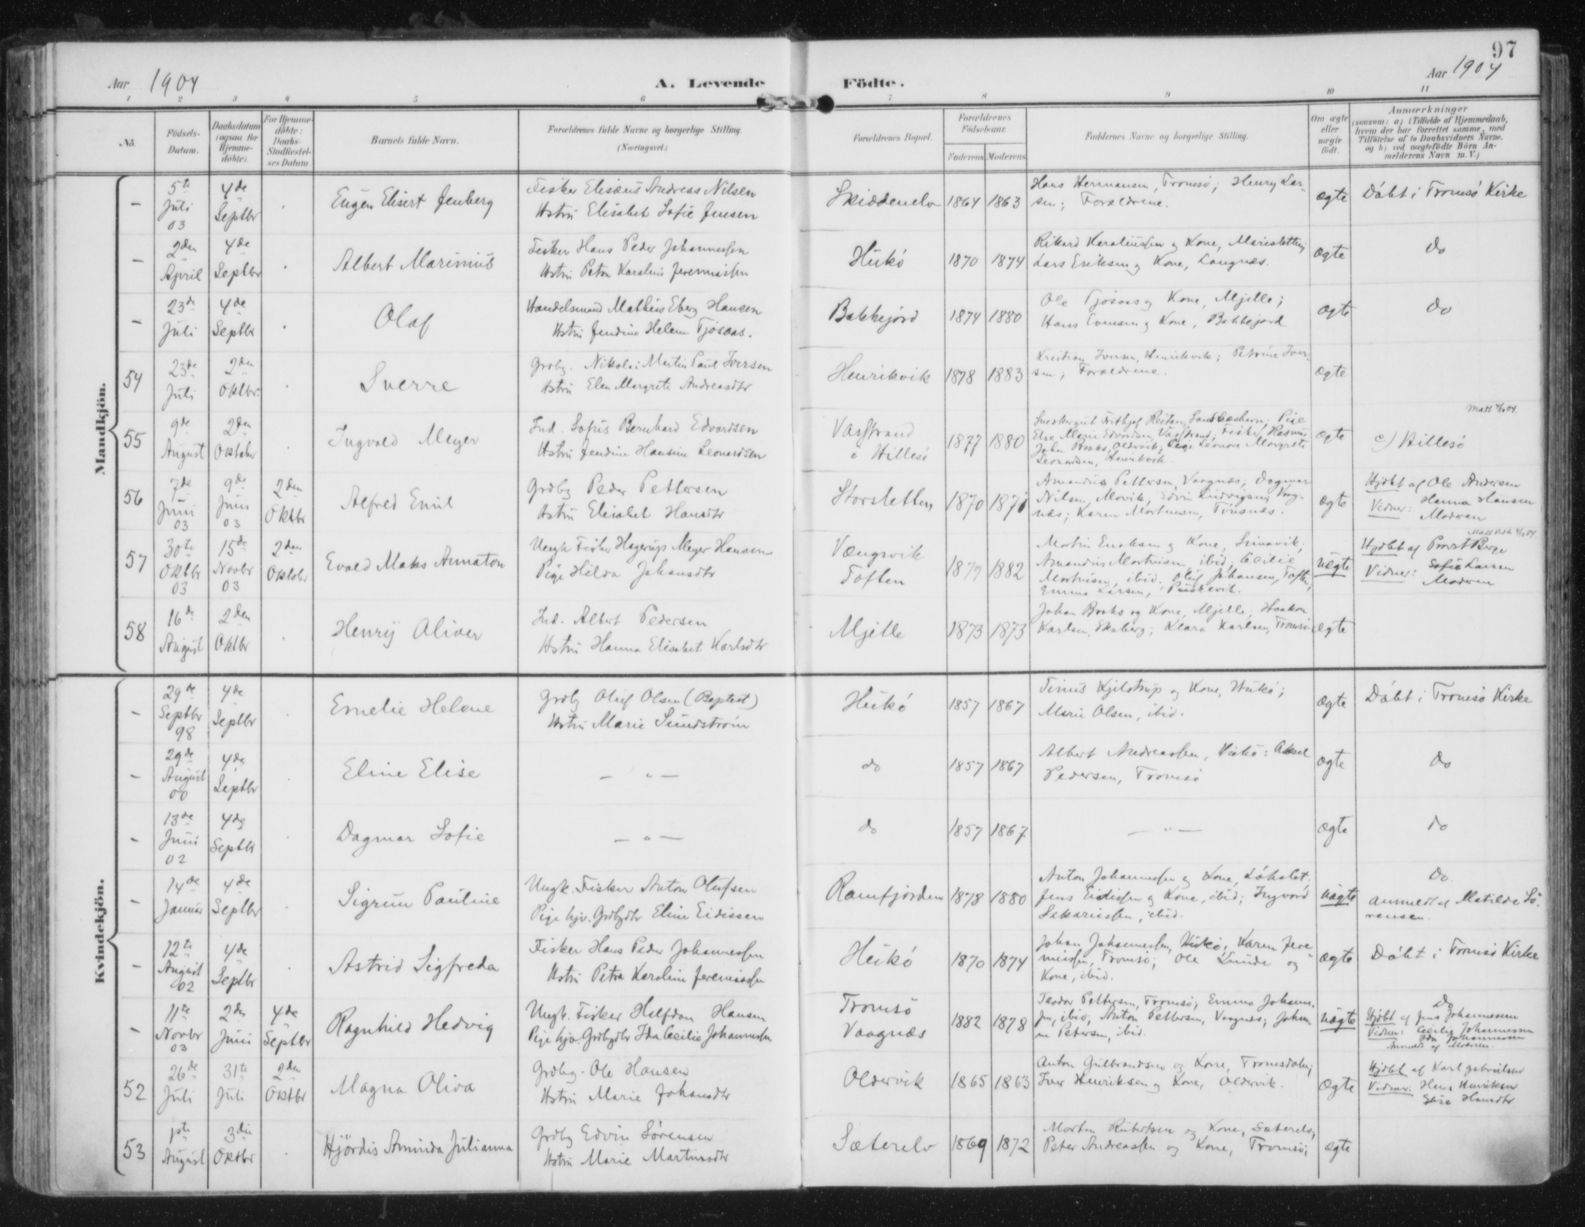 97
Aar 1904
A. Levende Födte.
Aar 1904
1 2 3 4 5 6 7 8 9 10 11
No. Födsels-Datum. Daabsdatum (ogsaa for Hjemme-döbte). For Hjemme-döbte: Daabs-Stadfæstel-ses Datum Barnets fulde Navn. Forældrenes fulde Navne og borgerlige Stilling (Næringsvei.) Forældrenes Bopæl. Forældrenes Födselsaar. Faderens Moderens Faddernes Navne og borgerlige Stilling. Om ægte eller uægte födt. Anmærkninger
Mandkjön.
- 5te Juli 03 4de Septbr Eugen Elisert Jenberg
Fisker Elisæus Andreas Nilsen
Hstru Elisabet Sofie Jensen
Skiddenelv 1864 1863
Hans Hermansen, Tromsö; Henry Lar-
sen; Forældrene.
ægte Döbt i Tromsö Kirke
- 2den April 4de Septbr Albert Marinius
Fisker Hans Peder Johannessen
Hstru Petra Karolius Jeremiassen
Hukö 1870 1874
Lars Eriksen og Kone, Langnæs.
ægte do
- 23de Juli 4de Septbr Olaf
Handelsmand Mathias Eberg Hansen
Hstru Jendine Helene Tjösaas.
Bakkejord 1874 1880
Ole Tjösaas og Kone, Mjelle;
Hans Evensen og Kone, Bakkejord
ægte do
54 23de Juli 2den Oktbr. Sverre
Grdbg. Nikolai Martin Paul Iversen
Hstru Elen Margrete Andreasdtr
Henrikvik 1878 1883
Kristian Iversen, Henrikvik; Petrine Iver-
sen; Forældrene.
ægte
55 9de August 2den Oktober Ingvald Meyer
Ind. Sofus Bernhard Edvardsen
Hstru Jendine Hansine Leonardsen
Vasstrand i Hillesö 1877 1880
Leonardsen, Henrikvik.
ægte c) Hillesö
56 7de Juni 03 9de Juni 03 2den Oktbr Alfred Emil
Grdbg Peder Pettersen
Hstru Elisabet Hansdtr
Storstetten 1870 1871
Amandus Pettersen, Vaagnæs; Dagmar
Nilsen, Movik; Edvin Ludvigsen, Vaag-
næs; Karen Mortensen, Tinsnæs.
ægte Hjdbt af Ole Andersen
Vidner: Hanna Hansen
Moderen
57 30te Oktbr 03 15de Novbr 03 2den Oktober Evald Maks Anmaton
Ungk. Fisker Hagerup Meyer Hansen
Pige Hilda Johansdtr
Vængsvik Toften 1879 1882
Martin Eriksen og Kone,
Amandus Mortensen, ibid; Cecilie
Mortensen, ibid. Oluf Johansen, Toften,
Emma Larsen,
uægte Hjdbt af Provst Berge
Vidner: Sofie Larsen
Moderen
58 16de August 2den Oktbr Henrij Oliver
Ind. Albert Pedersen
Hstru Hanna Elisabet Karlsdtr
Mjelle 1873 1873
Johan Boaks og Kone, Mjelle; Haakon
Karlsen, Skaberg; Klara Karlsen, Tromsö
ægte
Kvindekjön.
- 29de Septbr 98 4de Septbr Emelie Helene
Grdbg Oluf Olsen (Baptist)
Hstru Marie Sundström
Hukö 1857 1867
Tinus Kjilstrup og Kone, Hukö;
Marie Olsen, ibid.
ægte Döbt i Tromsö Kirke
- 29de August 00 4de Septbr Eline Elise
— " —
do 1857 1867
Albert Andreassen, Hukö; Aksel
Pedersen, Tromsö
ægte do
- 13de Juni 02 4de Septbr Dagmar Sofie
— " —
do 1857 1867
— " —
ægte do
- 14de Januar 4de Septbr Sigrun Pauline
Ungk. Fisker Anton Olufsen
Pige hjv. Grdbgdtr Eline Eidissen
Ramfjorden 1878 1880
Anton Johannessen og Kone,
Jens Eidissen og Kone, ibid; Ingvard
Sakariassen, ibid.
uægte do.
anmeldt af Matilde Sö-
rensen.
- 12te August 02 4de Septbr Astrid Sigfreda
Fisker Hans Peder Johannessen
Hstru Petra Karoline Jeremiassen
Hukö 1870 1874
Johan Johannessen, Hukö; Karen Jere-
miassen, Tromsö; Ole Sunde og
Kone, ibid.
ægte Döbt i Tromsö Kirke
- 11te Novbr 03 2den Juni 4de Septbr Ragnhild Hedvig
Ungk. Fisker Halfdan Hansen
Pige hjv. Grdbgdtr Ida Cecilie Johannessen
Tromsö Vaagnæs 1882 1878
Teodor Pettersen, Tromsö; Emma Johanne-
sen, ibid; Anton Pettersen, Vaagnæs; Johan-
ne Petersen, ibid.
uægte do
Hjdbt af Jens Johannessen
Vidner: Cecilie Johannessen
Ida Johannessen
Anmeldt af Moderen
52 26de Juli 31te Juli 2den Oktbr Magna Oliva
Grdbg. Ole Hansen
Hstru Marie Johansdtr
Oldervik 1865 1863
Anton Gulbrandsen og Kone, Tromsdalen;
Iver Henriksen og Kone, Oldervik.
ægte Hjdbt af Karl Gabrielsen
Vidner: Hans Henriksen
Elise Hansdtr
53 1ste August 3die Oktbr Hjördis Arminda Julianna
Grdbg Edvin Sörensen
Hstru Marie Martinsdtr
Sæterelv 1869 1872
Morten Kristofsen og Kone, Sæterelv;
Peter Andreassen og Kone, Tromsö;
ægte